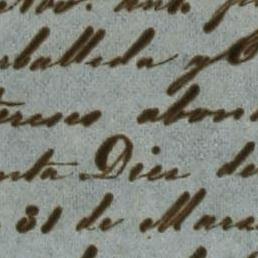 Nov. ant. p
rballeda y C
tereses abon
nta Diez de
31 de Mara